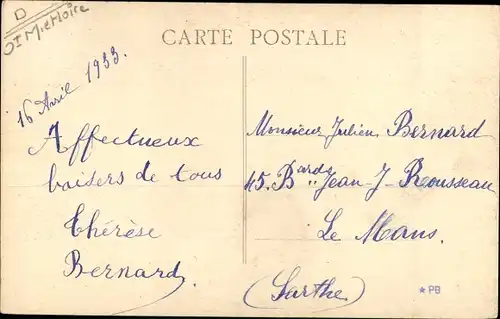 D
CARTE POSTALE
16 Avril 1933.
Affectueux
baisers de tous
Thérèse
Bernard
Monsieur Julien Bernard
45. Bard Jean J- Rousseau
Le Mans.
(Sarthe)
* PB